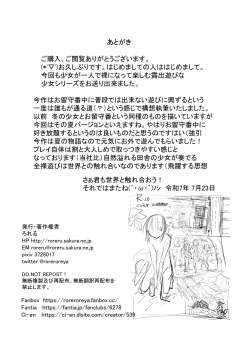 あとがき
ご購入、ご閲覧ありがとうございます。
(*'▽')お久しぶりです。はじめましての人ははじめまして。
今回も少女が一人で裸になって楽しむ露出遊びな
少女シリーズをお送り出来ました。
今作はお留守番中に普段では出来ない遊びに興ずるという
一度は誰もが通る道(?)という感じで構想執筆いたしました。
以前 冬の少女とお留守番という同種のものを描いていますが
今回はその夏バージョンといえますね。やはりお留守番中に
好き放題するというのは良いものだと思うのですはい(強引
今作は夏の物語なので元気にお外で遊んでもらいました!
プレイ自体は割と大人しめで取っつきやすい感じと
なっております(当社比)自然溢れる田舎の少女が奏でる
全裸遊びは世界との触れ合いなのであります(飛躍する思想
さぁ君も世界と触れ合おう!
それではまたね(´・ω・`)ノシ 令和7年 7月23日
発行・著作権者
ろれる
HP http://roreru.sakura.ne.jp
EM roreru@roreru.sakura.ne.jp
pixiv 3728017
twitter @roreroreya
DO NOT REPOST !
無断複製及び再配布、無断翻訳再配布を
禁止します。
Fanbox https://roreroreya.fanbox.cc/
Fantia https://fantia.jp/fanclubs/6278
Ci-en https://ci-en.dlsite.com/creator/539